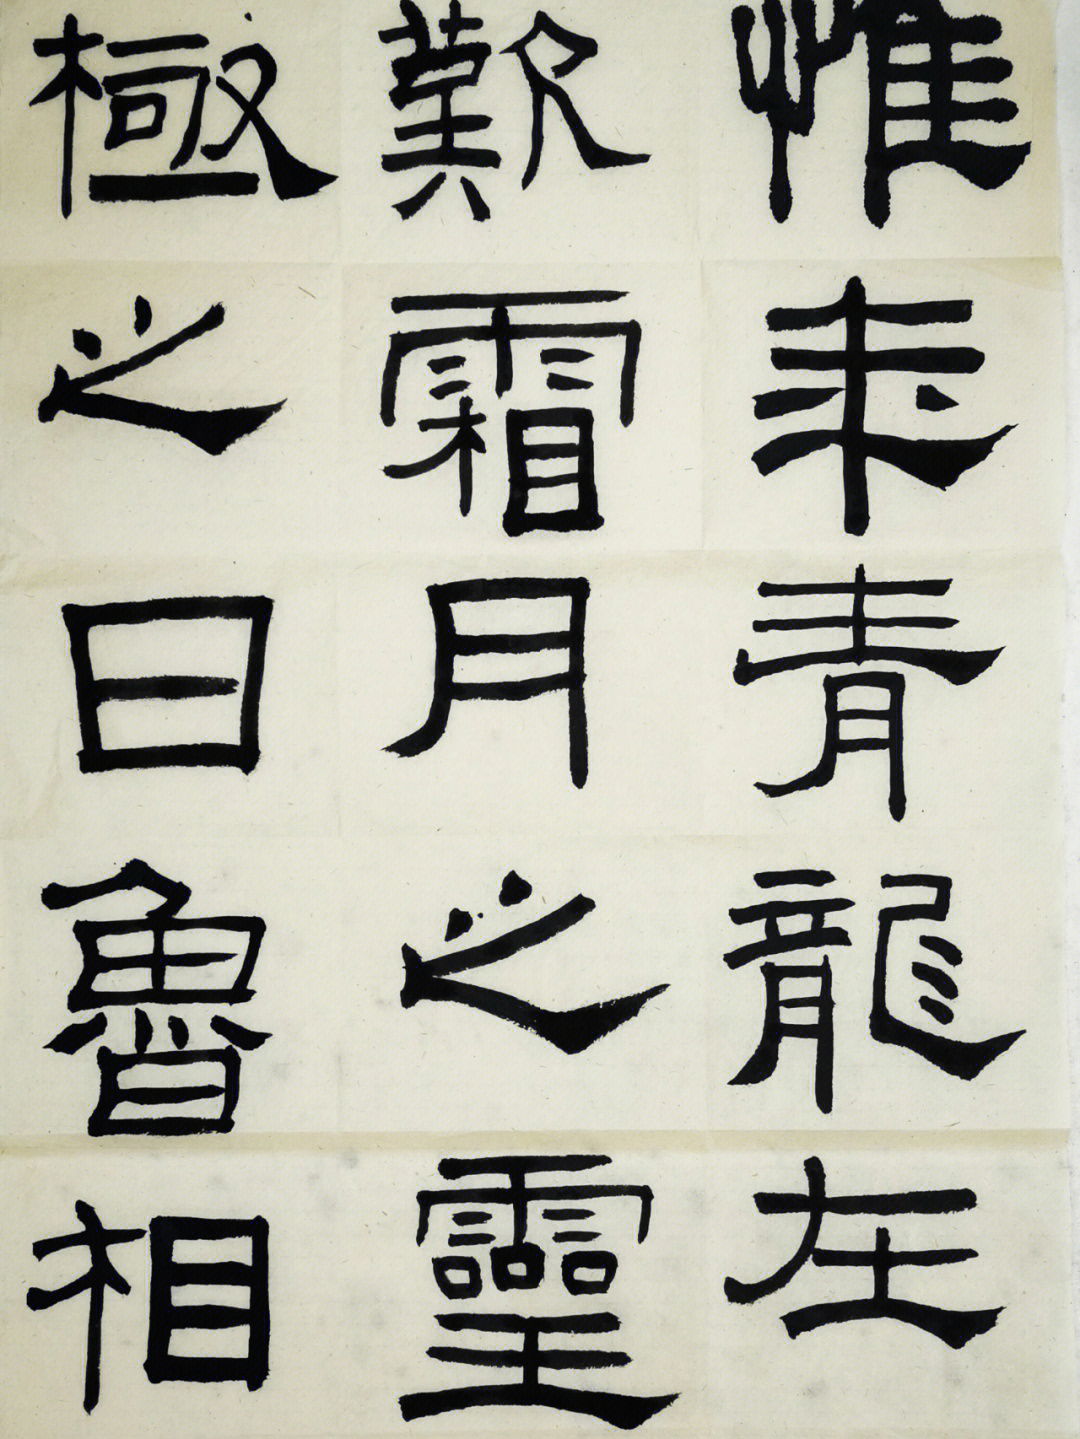 惟年青龍在
歎霜月之靈
極之日魯相